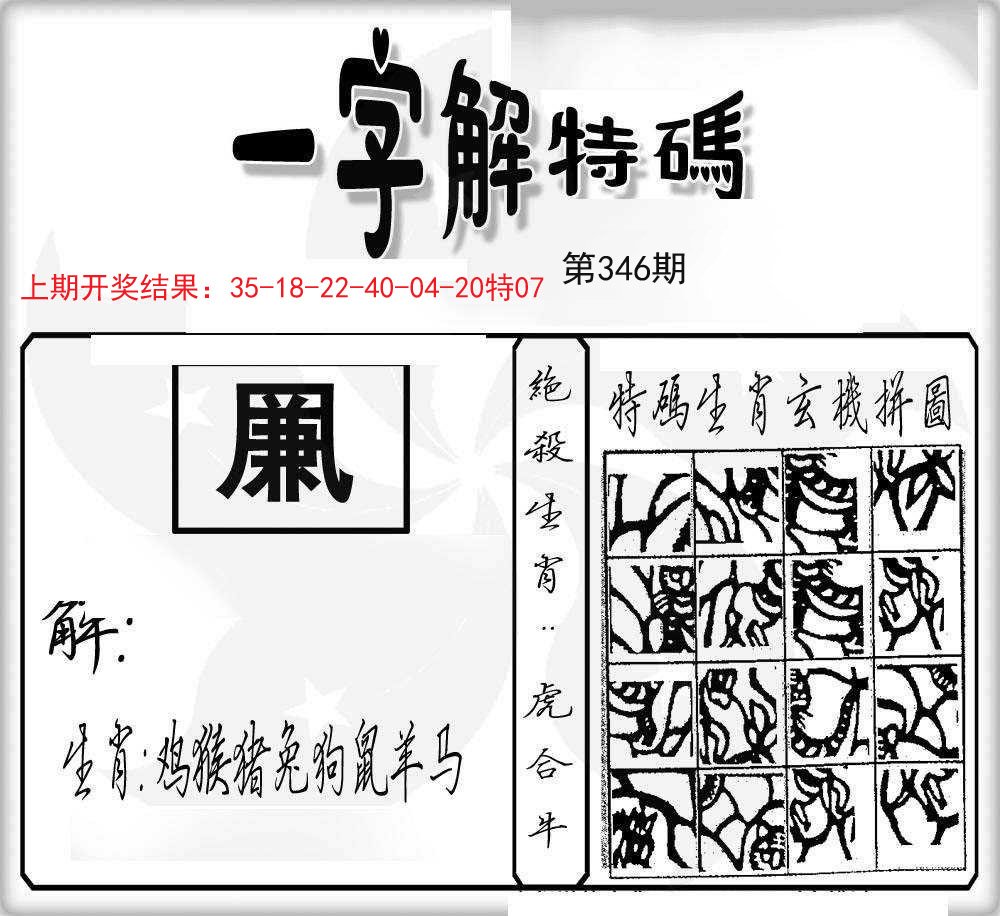 一字解特碼
第346期
上期开奖结果：35-18-22-40-04-20特07
解：
生肖：鸡猴猪兔狗鼠羊马
絶殺生肖：虎合牛
特碼生肖玄機拼圖